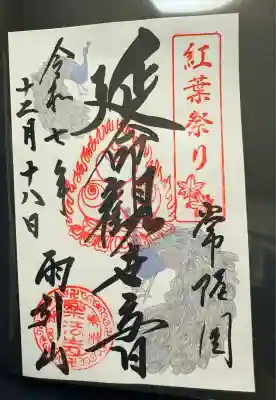 紅葉祭り
常陸国
延命観世音
雨引山
楽法寺
令和七年
十二月十八日